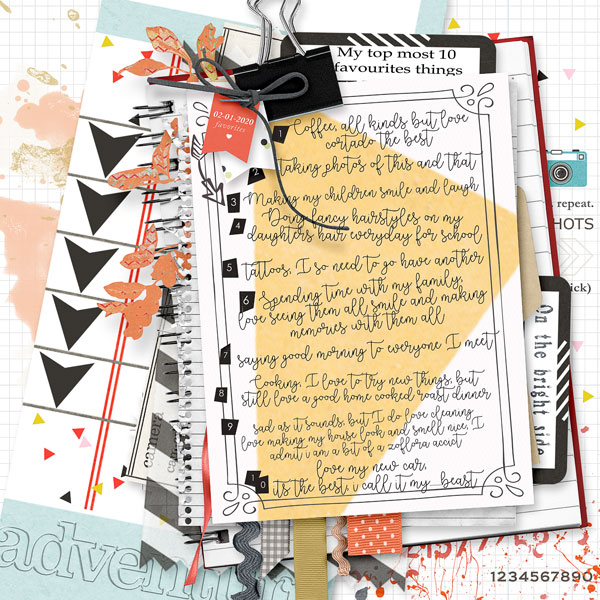 My top most 10
favourites things
02-01-2020
favorites
1 Coffee, all kinds but love
cortado the best
2 taking photos of this and that
3 Making my children smile and laugh
4 Doing fancy hairstyles on my
daughters hair everyday for school
5 tattoos, I so need to go have another
6 Spending time with my family,
love seeing them all smile and making
memories with them all
7 saying good morning to everyone I meet
8 Cooking, I love to try new things, but
still love a good home cooked roast dinner
9 sad as it sounds, but I do love cleaning,
love making my house look and smell nice, I
admit i am a bit of a zoflora accict
love my new car,
10 its the best, i call it my beast
repeat.
HOTS
ick)
On the bright side
camera
adventur
1234567890